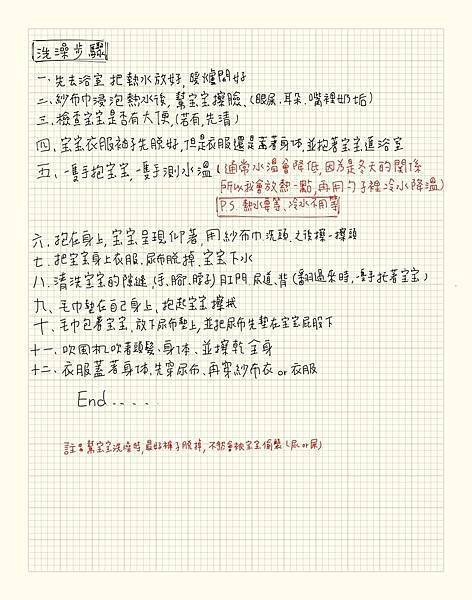 洗澡步驟
一、先去浴室把熱水放好,暖爐開好
二、紗布巾浸泡熱水後,幫宝宝擦臉、(眼屎、耳朵、嘴裡奶垢)
三、檢查宝宝是否有大便,(若有,先清)
四、宝宝衣服袖子先脫好,但是衣服還是蓋著身体,並抱著宝宝進浴室
五、一隻手抱宝宝,一隻手測水溫(通常水溫會降低,因為是冬天的關係
所以我會放熱一點,再用勺子裡冷水降溫)
P.S. 熱水要等、冷水不用等
六、抱在身上,宝宝呈現仰著,用紗布巾洗頭,之後擦一擦頭
七、把宝宝身上衣服、尿布脫掉,宝宝下水
八、清洗宝宝的隙縫(手、腳、脖子)肛門、尿道、背(翻過來時,一隻手托著宝宝)
九、毛巾墊在自己身上、抱起宝宝擦拭
十、毛巾包著宝宝,放下尿布墊上,並把尿布先墊在宝宝屁股下
十一、吹風机吹著頭髮、身体、並擦乾全身
十二、衣服蓋著身体,先穿尿布、再穿紗布衣 or 衣服
End.....
註:幫宝宝洗澡時,最好褲子脫掉,不然會被宝宝偷襲(尿 or 屎)